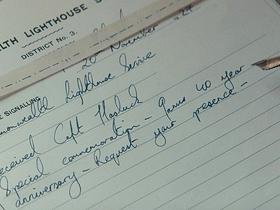 LTH LIGHTHOUSE S
DISTRICT No. 3.
20 November
SIGNALLING
monwealth Lighthouse Service
eceived Capt Hasluck
Special commemoration - Janus 40 year
anniversary - Request your presence -